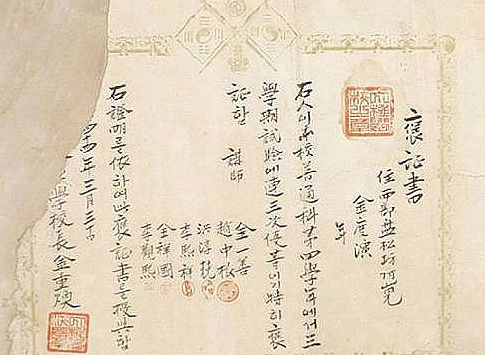 褒証書
住西部
金
年
右人이本校普通科第四學年에서三
學期試驗에連三次優等이기特히褒
証함 講師
全一善
趙中根
李熙祥
洪淳
金祥國
李觀熙
右證明을依하여此褒証書를授與함
四十四年三月三十日
學校長金重煥